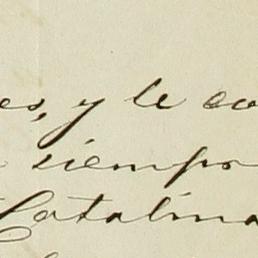 es, y le co
siempre
Catalina